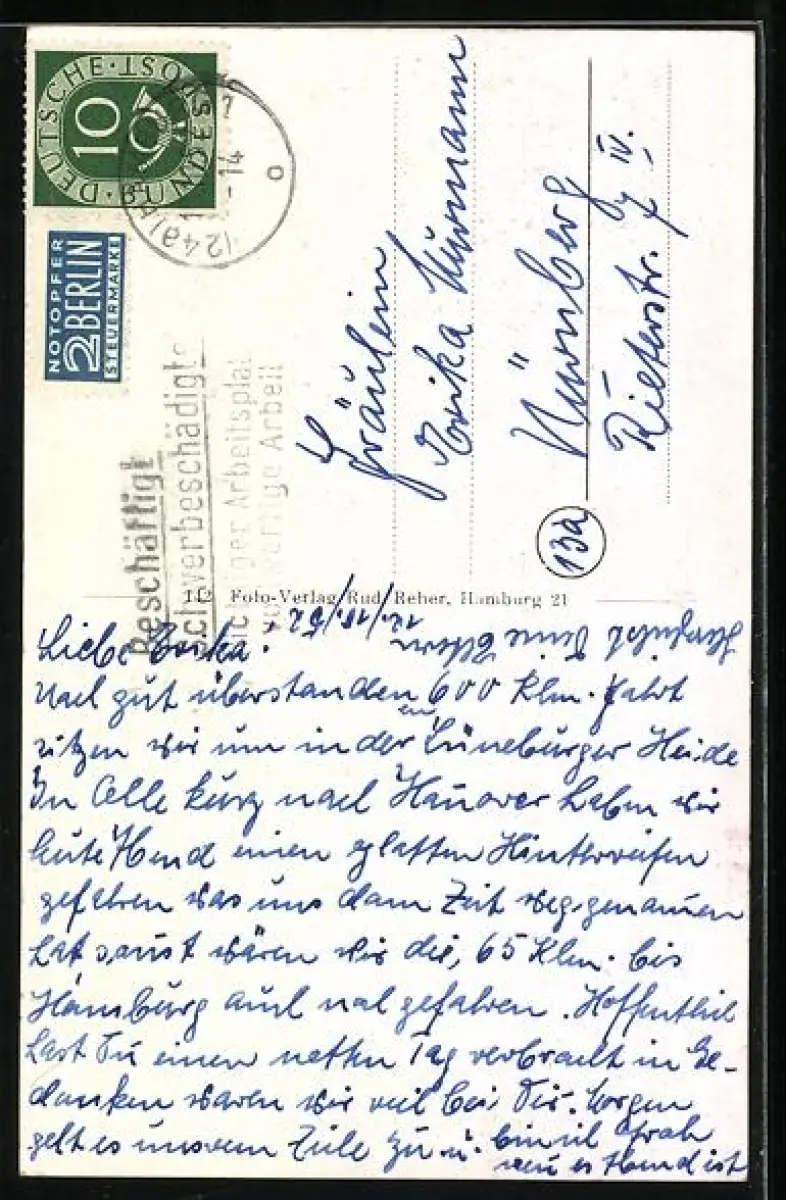 DEUTSCHE BUNDESPOST
10
NOTOPFER
2 BERLIN
STEUERMARKE
(24a)
14
Beschäftigt
Schwerbeschädigte
Arbeitsplat
Arbeit
Fräulein
Erika
Nürnberg
Rieterstr. 7 IV.
13a
112 Foto-Verlag Rud. Reher, Hamburg 21
12./10./52.
Liebe Erika!
Nach gut überstanden 600 Klm. Fahrt
sitzen wir nun in der Lüneburger Heide
In Celle kurz nach Hanover haben wir
heute Abend einen platten Hinterreifen
gefahren was uns dann Zeit weggenommen
hat sonst wären wir die 65 Klm. bis
Hamburg auch noch gefahren. Hoffentlich
hast Du einen netten Tag verbracht in Ge-
danken waren wir viel bei Dir. Morgen
geht es unserem Ziele zu u. bin ich froh
wenn es Abend ist